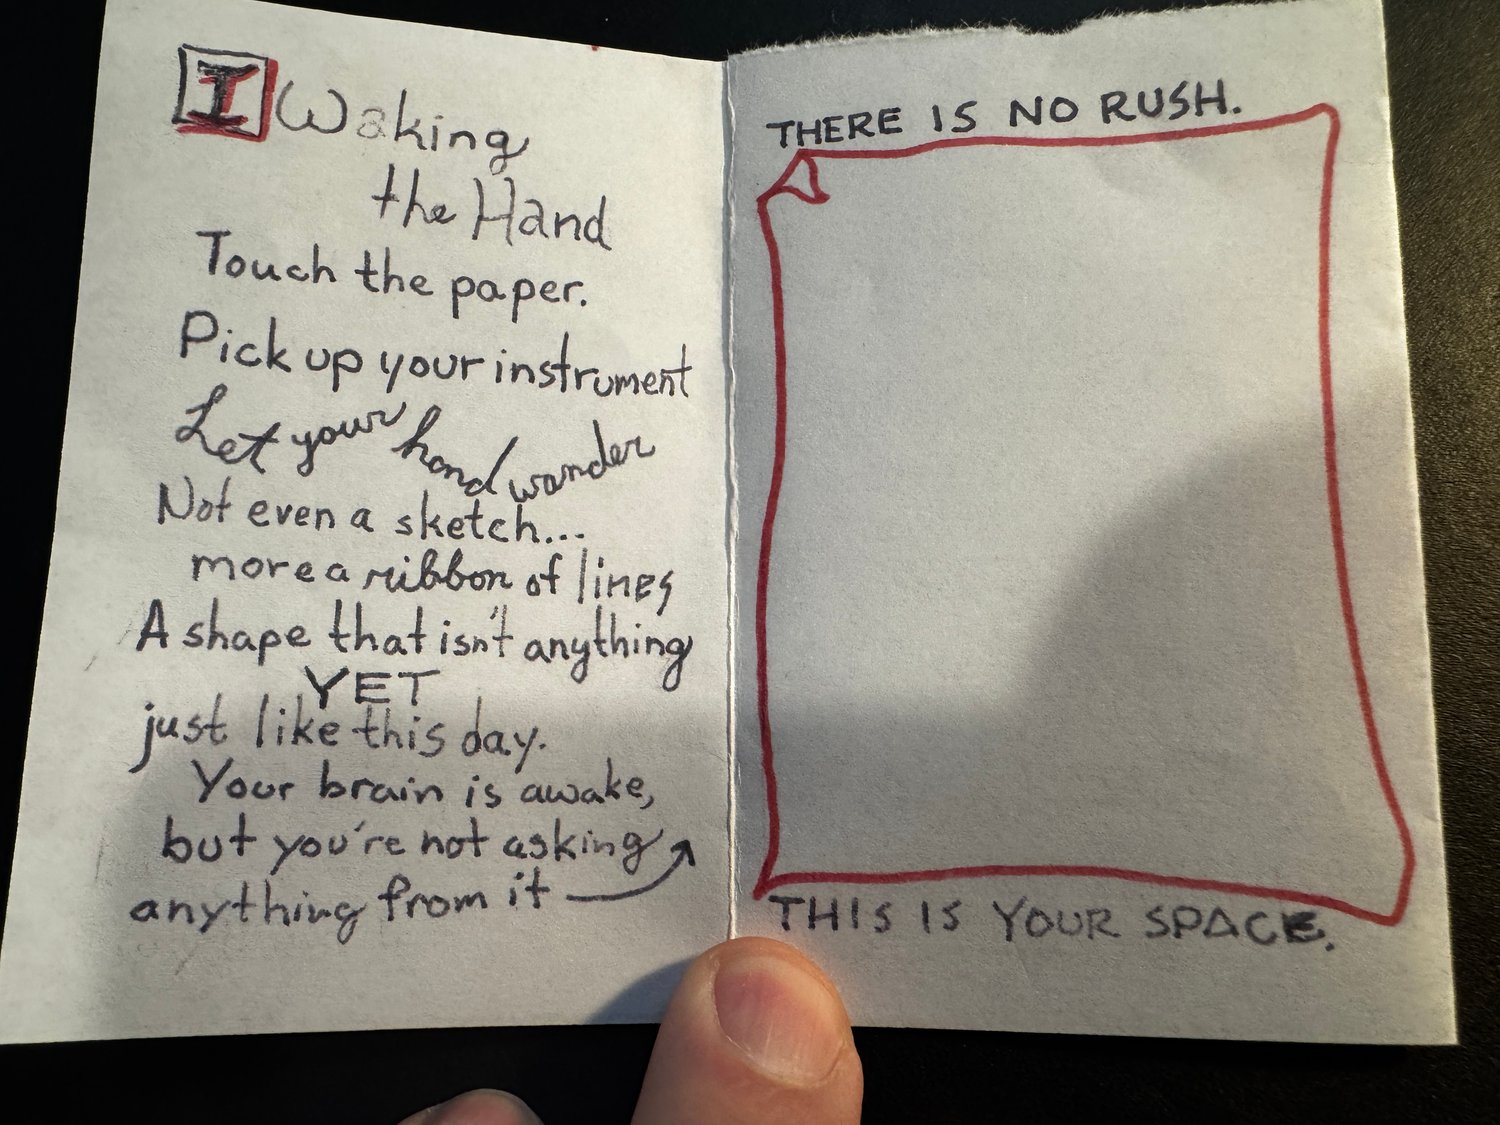 I Waking
the Hand
Touch the paper.
Pick up your instrument
Let your hand wander
Not even a sketch...
more a ribbon of lines
A shape that isn't anything
YET
just like this day.
Your brain is awake,
but you're not asking
anything from it
THERE IS NO RUSH.
THIS IS YOUR SPACE.